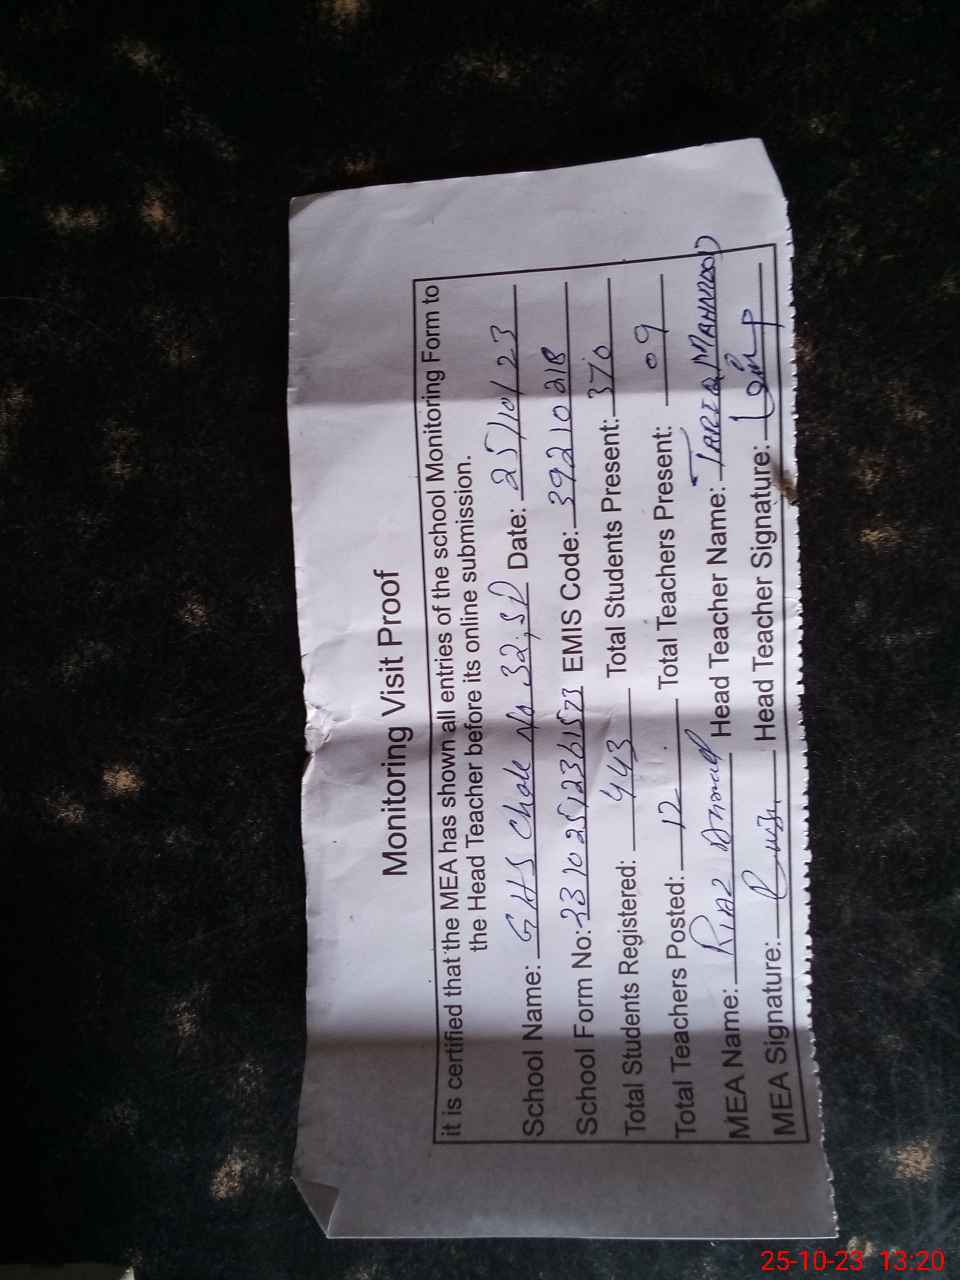 Monitoring Visit Proof
it is certified that the MEA has shown all entries of the school Monitoring Form to
the Head Teacher before its online submission.
School Name: GHS Chak No 32, SP Date: 25/10/23
School Form No: 33102512361573 EMIS Code: 39210218
Total Students Registered: 443 Total Students Present: 370
Total Teachers Posted: 12 Total Teachers Present: 09
MEA Name: RIAZ Head Teacher Name: TARIQ MAHMOOD
MEA Signature: Head Teacher Signature:
25-10-23 13:20